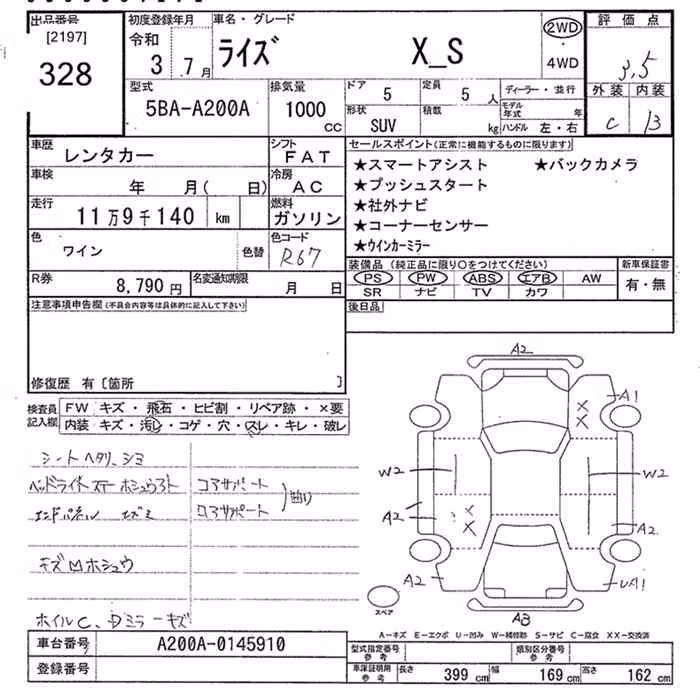 出品番号
[2197]
328
初度登録年月
令和
3 . 7月
車名・グレード
ライズ X_S
2WD
4WD
評価点
3.5
外装 内装
C B
型式
5BA-A200A
排気量
1000
CC
ドア
5
定員
5 人
形状
SUV
積載
kg
ディーラー・並行
モデル年式 年
ハンドル 左・右
車歴
レンタカー
シフト
FAT
車検
年 月( 日)
冷房
AC
走行
11万9千140 km
燃料
ガソリン
色
ワイン
色替
色コード
R67
R券
8,790円
名変通知期限
月 日
セールスポイント(正常に機能するものに限ります)
★スマートアシスト ★バックカメラ
★プッシュスタート
★社外ナビ
★コーナーセンサー
★ウインカーミラー
装備品(純正品に限り○をつけてください)
PS PW ABS エアB AW
SR ナビ TV カワ
新車保証書
有・無
後日品
注意事項申告欄(不具合内容等は具体的に記入して下さい)
修復歴 有〔箇所 〕
検査員記入欄
FW キズ・飛石・ヒビ割・リペア跡・×要
内装 キズ・汚レ・コゲ・穴・スレ・キレ・破レ
シートヘタリ、シミ
コアサポート
曲り
エンドパネル
キズ凹ホシュウ
ホイルC、
ミラーキズ
A2
A1
×
×
W2
W2
A2
×
A2
A2
UA1
A3
スペア
A-キズ E-エクボ U-凹み W-補修跡 S-サビ C-腐食 XX-交換済
車台番号
A200A-0145910
登録番号
型式指定番号
参考
類別区分番号
参考
車庫証明用
参考
長さ 399 cm 幅 169 cm 高さ 162 cm